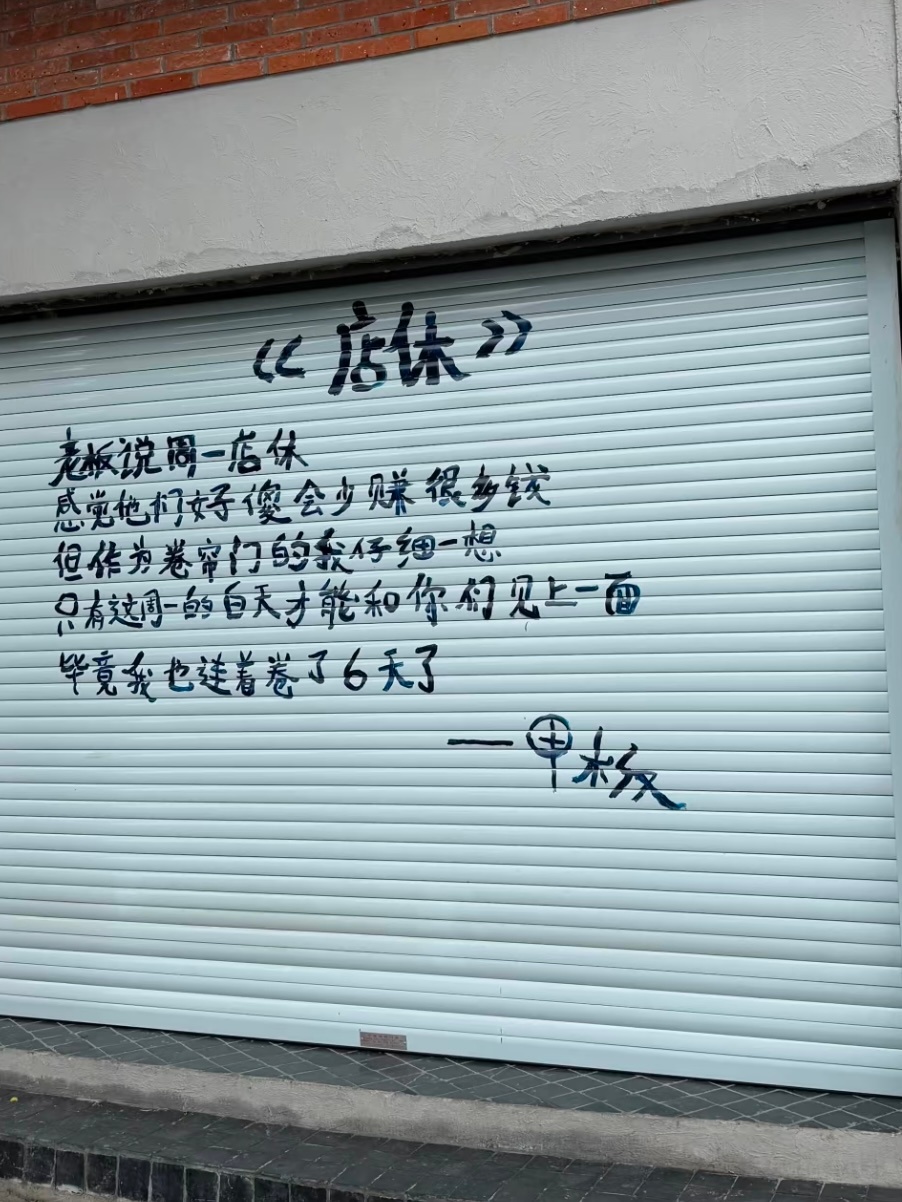 《店休》
老板说周一店休
感觉他们好傻会少赚很多钱
但作为卷帘门的我仔细一想
只有这周一的白天才能和你们见上一面
毕竟我也连着卷了6天了
—甲木级